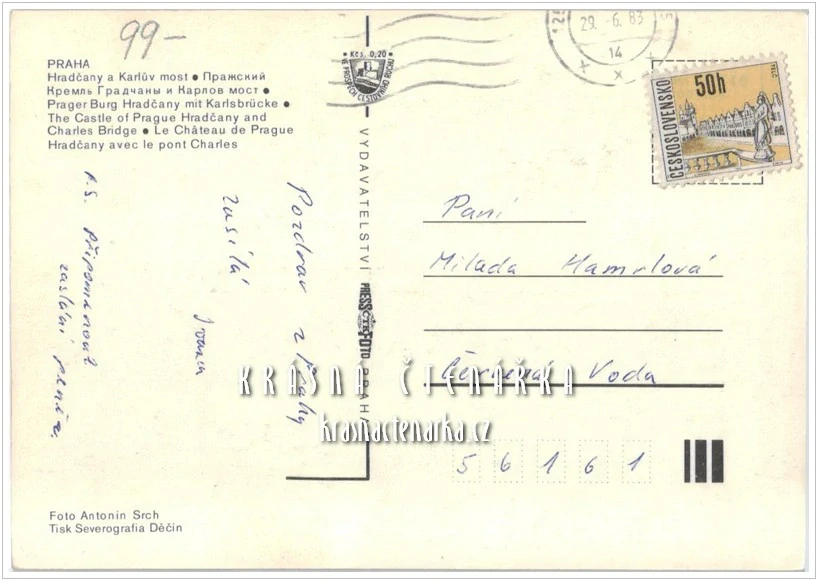 99-
PRAHA
Hradčany a Karlův most ● Пражский
Кремль Градчаны и Карлов мост ●
Prager Burg Hradčany mit Karlsbrücke ●
The Castle of Prague Hradčany and
Charles Bridge ● Le Château de Prague
Hradčany avec le pont Charles
Pozdrav z Prahy
zasílá
P.S. Připomenout
zaslání
Foto Antonin Srch
Tisk Severografia Děčín
Kčs. 0,20
VE PROSPĚCH CESTOVNÍHO RUCHU
VYDAVATELSTVÍ PRESSFOTO PRAHA
ČTK
29. -6. 83
14
ČESKOSLOVENSKO
50h
TELČ
Paní
Milada Hamrlová
Červená Voda
56161
KRÁSNÁ ČTENÁŘKA
krasnactenarka.cz